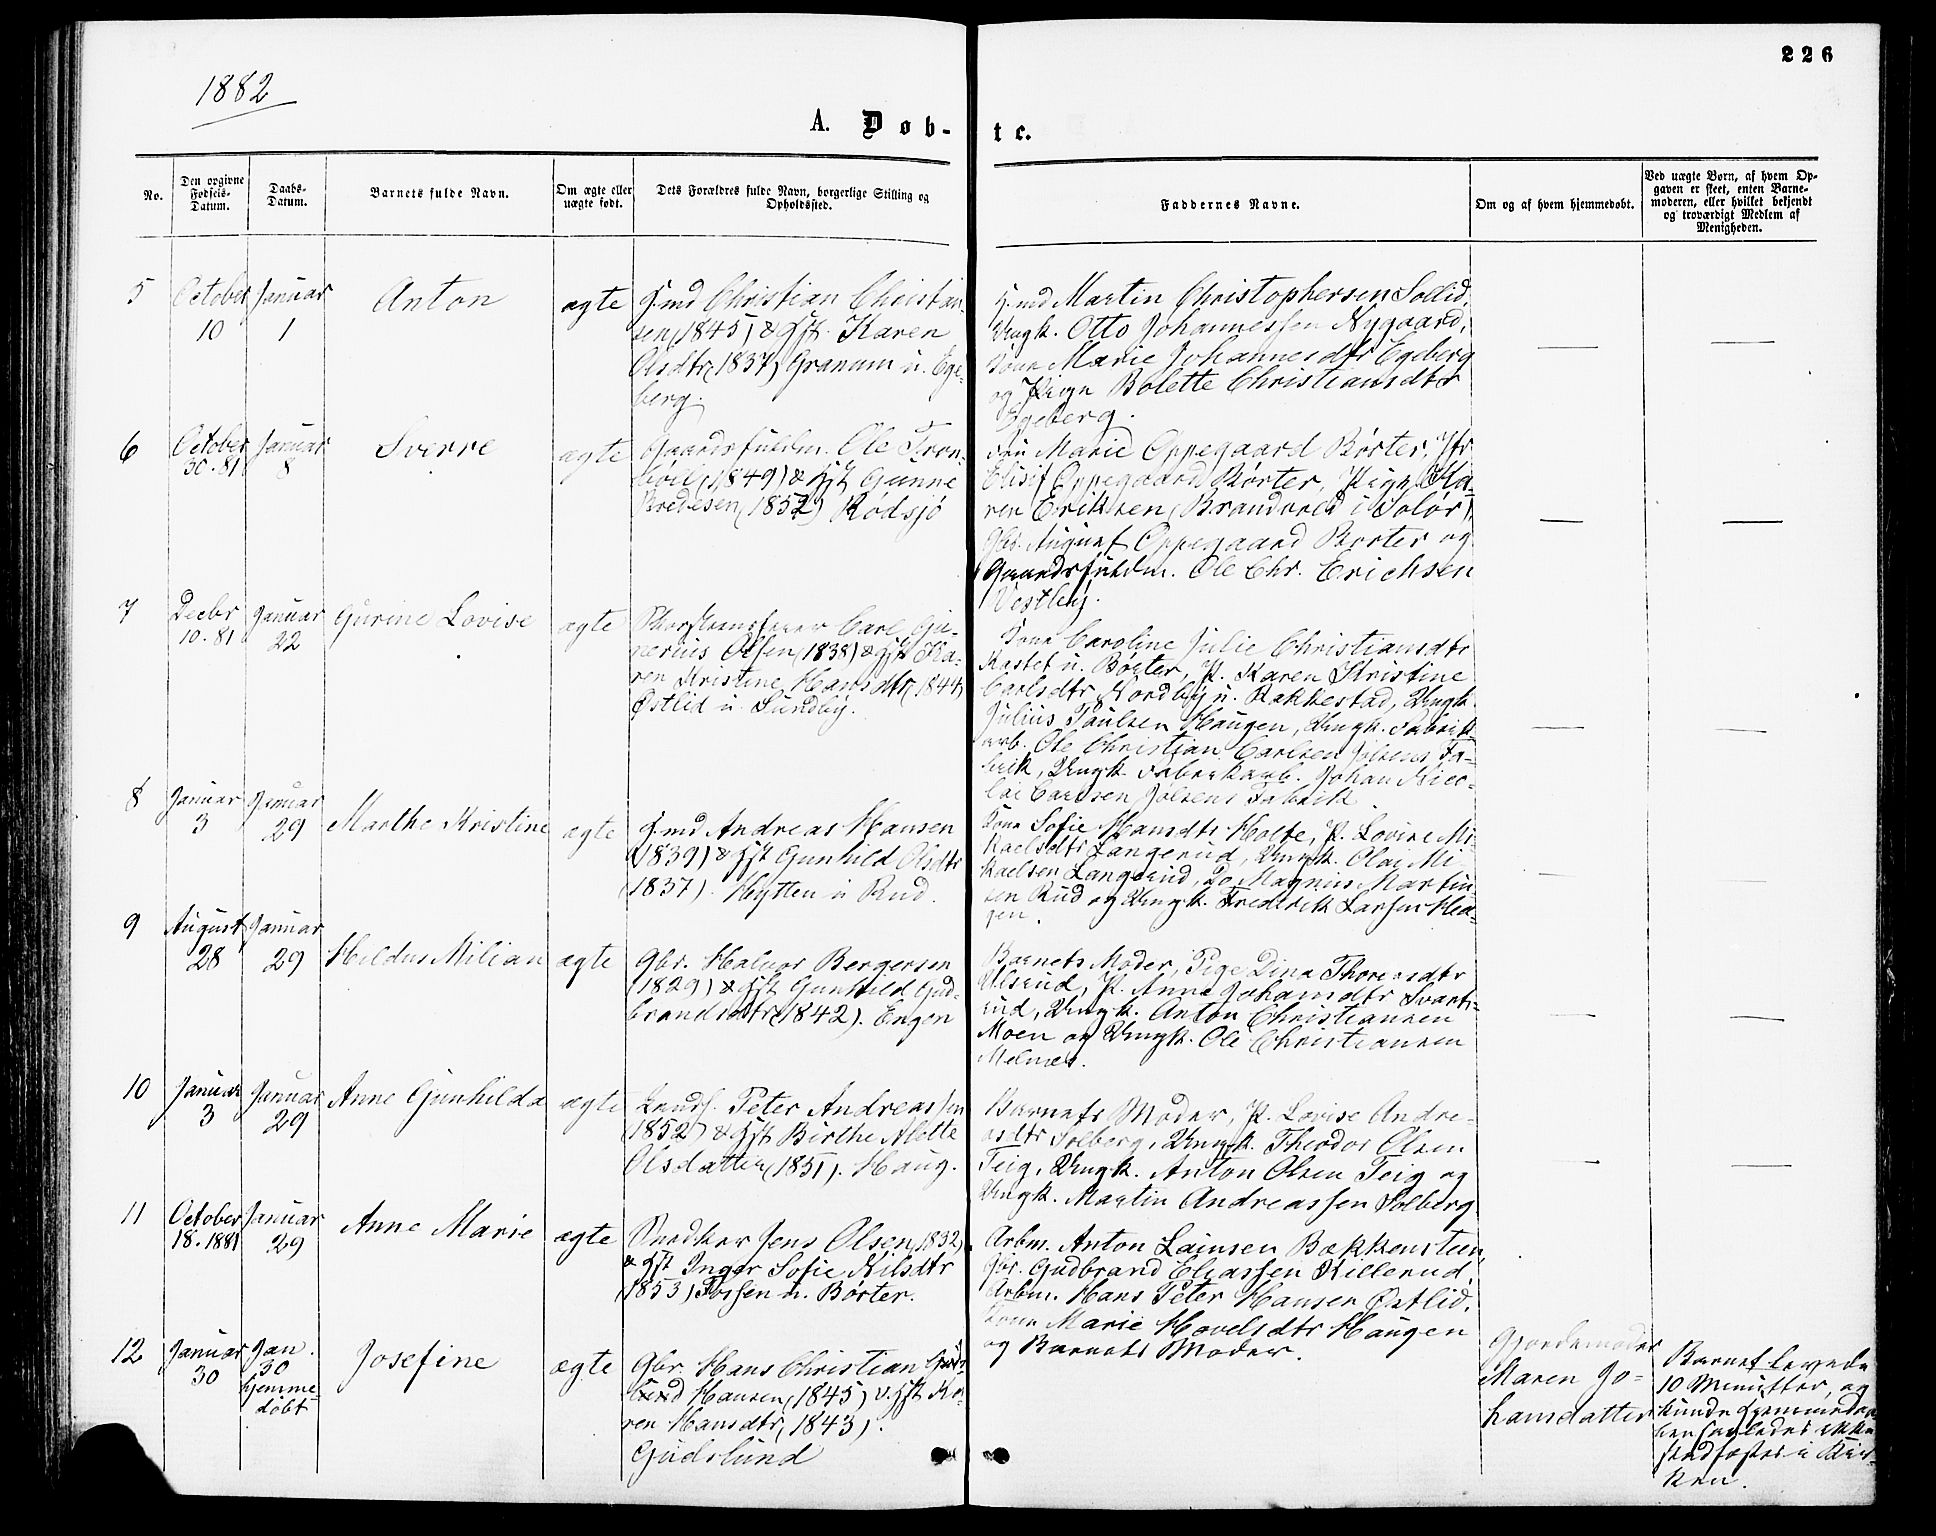 226
1882
A. Døb-te.
No.
Den opgivne
Fødsels-
Datum.
Daabs-
Datum.
Barnets fulde Navn.
Om ægte eller
uægte født.
Dets Forældres fulde Navn, borgerlige Stilling og
Opholdssted.
Faddernes Navne.
Om og af hvem hjemmedøbt.
Ved uægte Børn, af hvem Op-
gaven er skeet, enten Barne-
moderen, eller hvilket bekjendt
og troværdigt Medlem af
Menigheden.
5
October
10
Januar
1
Anton
ægte
Christian Christian-
sen (1845) & Hst. Karen
Olsdtr (1837) Granum u. Ege-
berg.
Martin Christophersen Sollid,
Ungk. Otto Johannessen Nygaard,
Kone Marie Johannesdtr Egeberg
og Pige Bolette Christiansdtr
Egeberg.
6
October
30. 81
Januar
8
Sverre
ægte
Gaardsfuldm. Ole Tron-
bøl (1849) & Hst Gunne
Bredesen (1852) Rødsjø
Fru Marie Oppegaard Børter, Jfr
Elisif Oppegaard Børter, Pige Ka-
ren Eriksen (Brandvold i Solør),
Gbr. August Oppegaard Børter og
Gaardsfuldm. Ole Chr. Erichsen
Vestby.
7
Decbr
10. 81
Januar
22
Gurine Lovise
ægte
Carl Gu-
nerius Olsen (1838) & Hst Ka-
ren Kristine Hansdtr (1844)
Østlid u. Sundby.
Kone Caroline Julie Christiansdtr
Kastet u. Børter, P. Karen Kristine
Carlsdtr Nordby u. Bakkestad, Ungk.
Julius Paulsen Haugen, Ungk. Fabrik-
arb. Ole Christian Carlsen Jølsens Fa-
brik, Ungk. Fabrikarb. Johan Nico-
lai Carlsen Jølsens Fabrik.
8
Januar
3
Januar
29
Marthe Kristine
ægte
Andreas Hansen
(1839) & Hst Gunhild Olsdtr
(1837). Hytten u Rud.
Kone Sofie Hansdtr Holte, P. Lovise Mi-
kaelsdtr Langerud, Ungk. Olai Mi-
kaelsen Langerud, Do Magnus Martin-
sen Rud og Ungk. Frederik Larsen Hau-
gen.
9
August
28
Januar
29
Heldus Milian
ægte
Gbr. Halvor Bergersen
(1829) & Hst Gunhild Gud-
brandsdtr (1842). Engen
Barnets Moder, Pige Dina Thorensdtr
Ulsrud, P. Anne Johansdtr Svarts-
rud, Ungk. Anton Christiansen
Moen og Ungk. Ole Christiansen
Melnæs.
10
Januar
3
Januar
29
Anne Gunhilda
ægte
Peter Andreassen
(1852) & Hst Birthe Alette
Olsdatter (1851). Haug.
Barnets Moder, P. Lovise Andre-
asdtr Solberg, Ungk. Theodor Olsen
Teig, Ungk. Anton Olsen Teig og
Ungk. Martin Andreassen Solberg
11
October
18. 1881
Januar
29
Anne Marie
ægte
Snedker Jens Olsen (1832)
& Hst Inger Sofie Nilsdtr
(1853) Fossen u. Børter.
Arbm. Anton Bækkensteen,
Gbr. Gudbrand Eliassen Killerud,
Arbm. Hans Peter Hansen Østlid,
Kone Marie Hovelsdtr Haugen
og Barnets Moder.
12
Januar
30
Jan.
30
hjemme-
døbt
Josefine
ægte
Gbr Hans Christian
Hansen (1845) & Hst Ka-
ren Hansdtr (1843).
Gudslund
Gjordemoder
Maren Jo-
hansdatter
Barnet levede
10 Minutter, og
kunde Hjemmedaa-
ben saaledes ikke
stadfæstes i Kir-
ken.